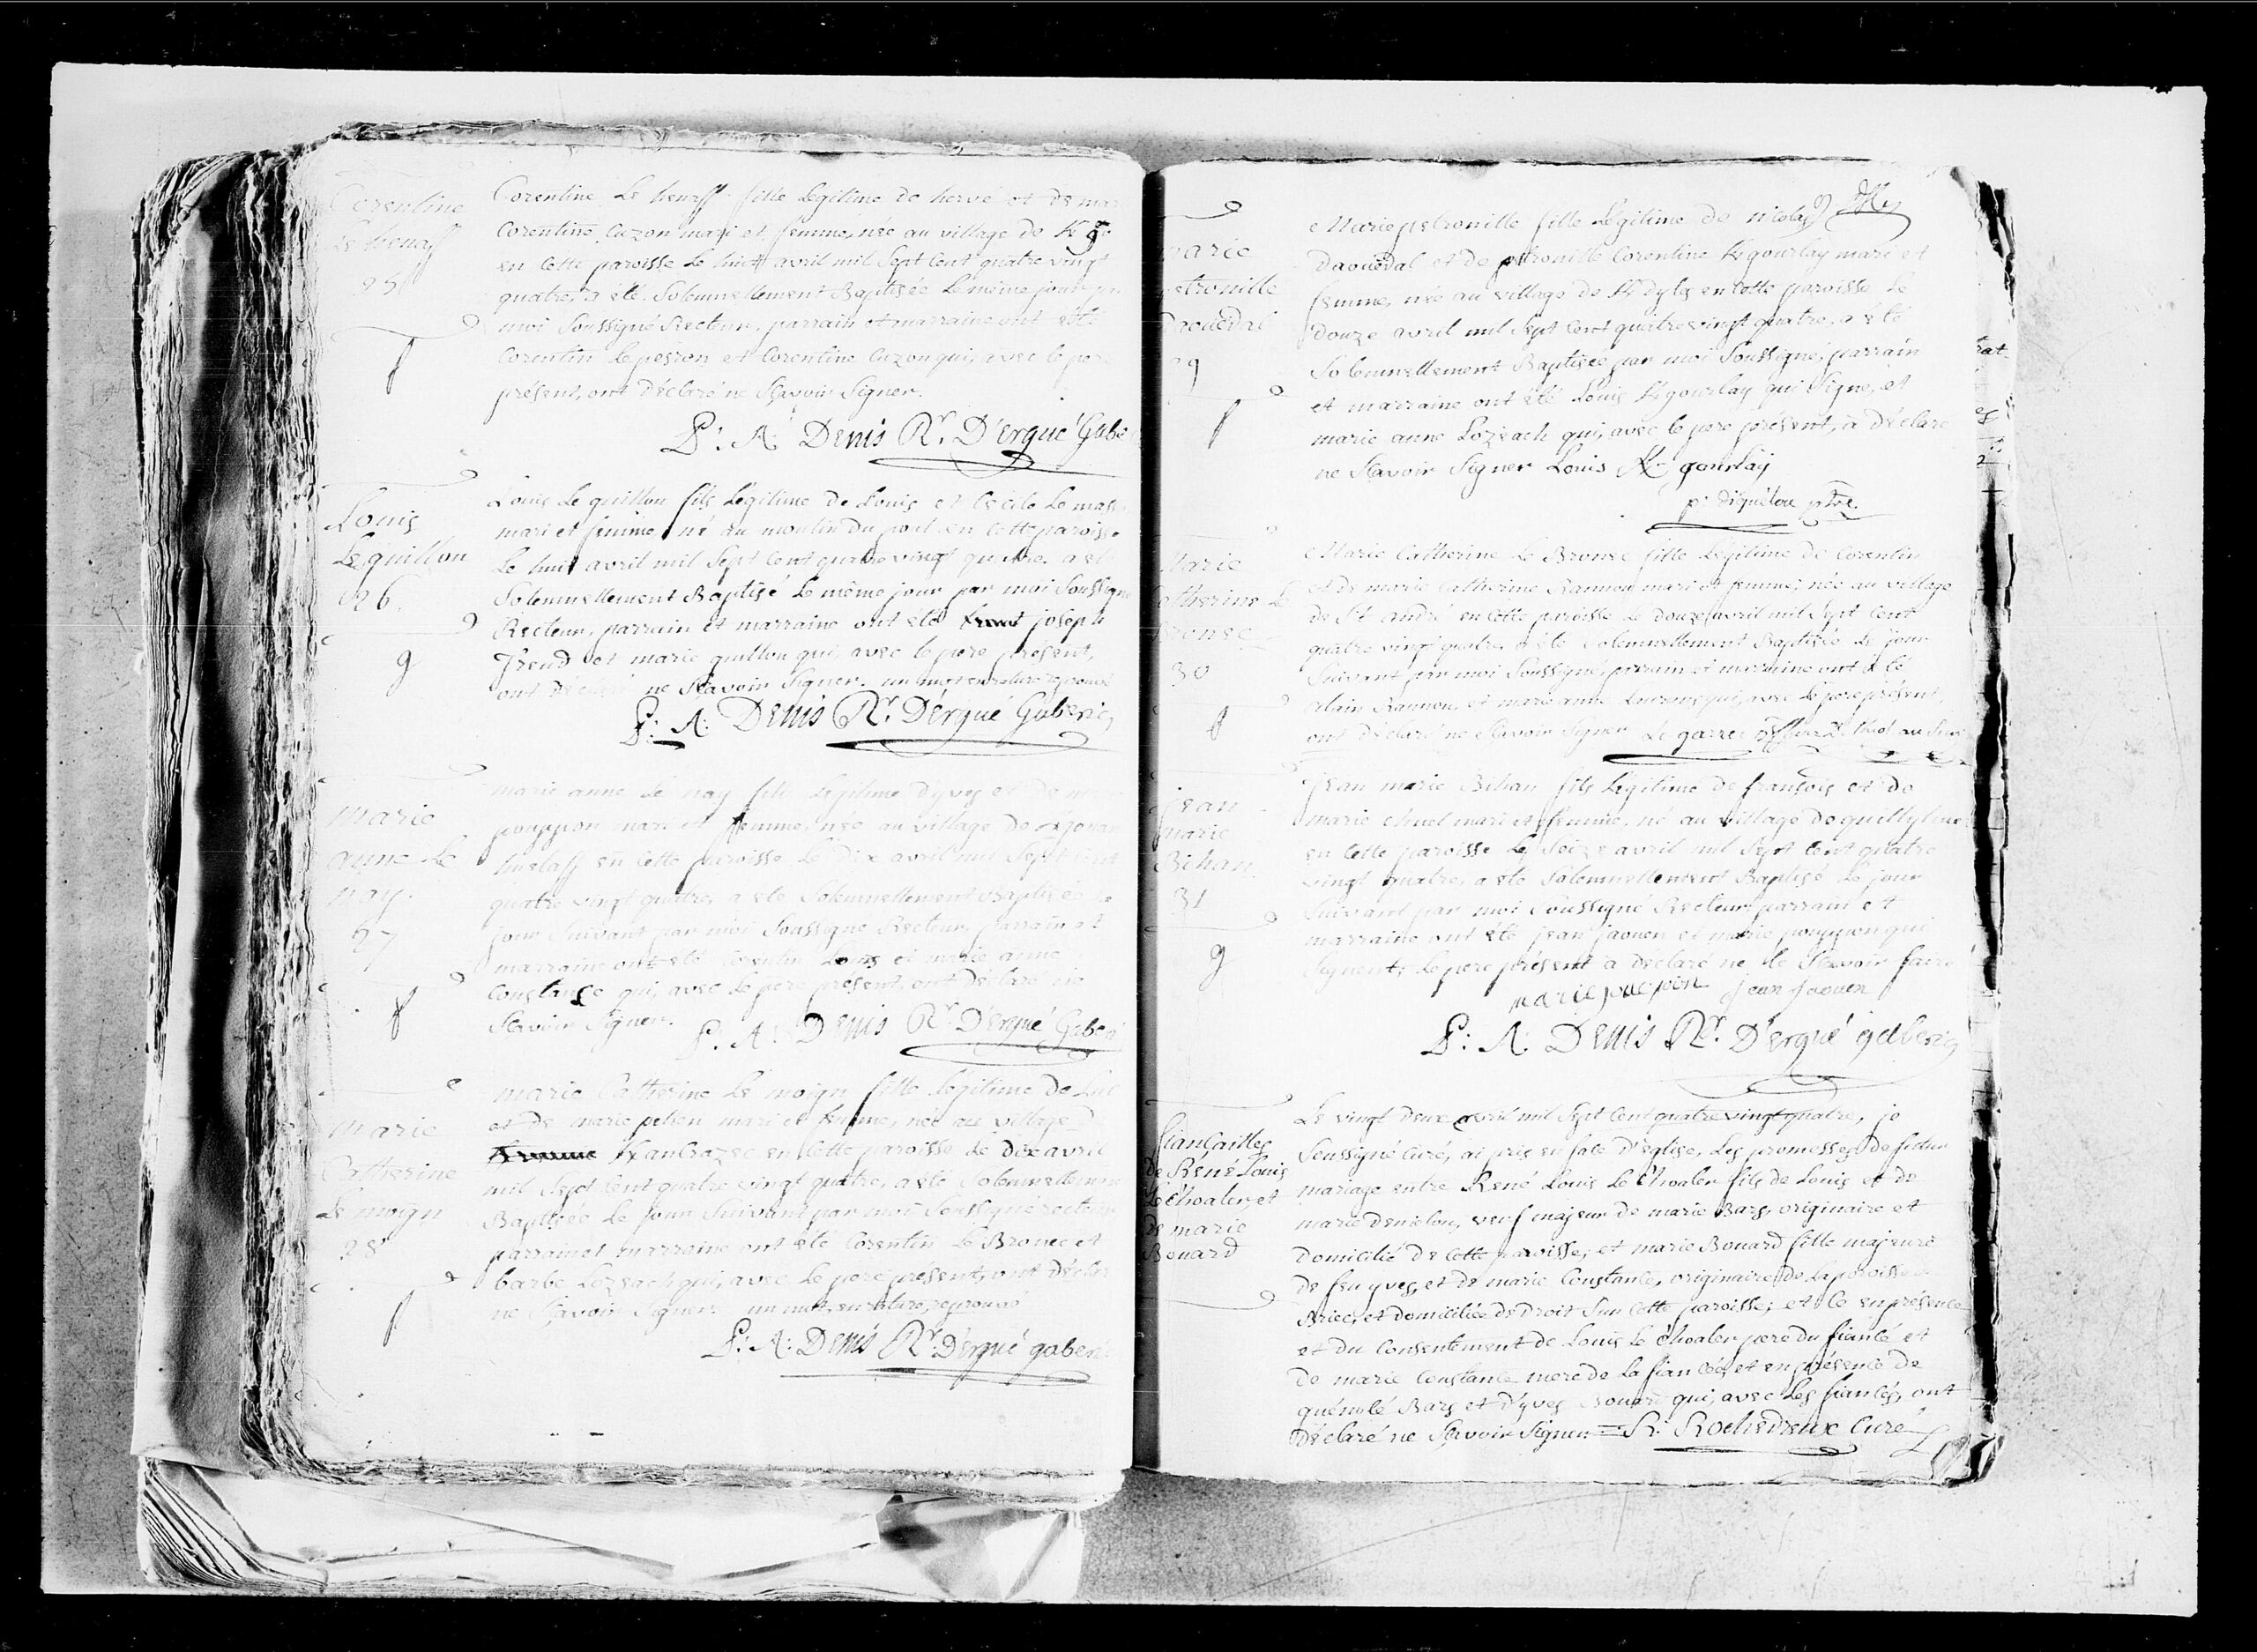 Corentine
Le henaff
25
Corentine Le henaff fille Legitime de hervé et de mar
Corentine Cuzon mari et femme, née au village de
en cette paroisse Le huit avril mil Sept Cent quatre vingt
quatre, a été Solemnellement Baptisée Le même jour par
moi Soussigné Recteur, parrain et marraine ont été
Corentin Le pesron et Corentine Cuzon qui, avec le pere
présent, ont Déclaré ne Sçavoir Signer.
P: A: Denis Rr. D'ergué Gabe
Louis
Le quillou
26.
Louis Le quillou fils Légitime de Louis et Cecile Le mas
mari et femme né au moulin du pont en cette paroisse
Le huit avril mil Sept Cent quatre vingt quatre. a été
Solemnellement Baptisé Le même jour par moi Soussigné
Recteur, parrain et marraine ont été joseph
et marie quillou qui, avec le pere présent,
ont Déclaré ne Sçavoir Signer. un mot en rature reprouvé
P: A: Denis Rr. D'ergué Gaberic
marie
anne Le
nay.
27
marie anne Le nay fille Légitime D'yves et De
pouppon mari et femme, née au village de
en cette paroisse Le Dix avril mil Sept Cent
quatre vingt quatre, a été Solemnellement Baptisée Le
jour Suivant par moi Soussigné Recteur, parrain et
marraine ont été Corentin et marie anne
Constance qui, avec Le pere présent, ont Déclaré ne
Sçavoir Signer.
P: A: Denis Rr. D'ergué Gaberi
marie
Catherine
Le moign
28
marie Catherine Le moign fille Légitime de
et de marie petion mari et femme, née au village
en cette paroisse Le Dix avril
mil Sept Cent quatre vingt quatre, a été Solemnelleme
Baptisée Le jour Suivant par moi Soussigné recteur
parrain et marraine ont été Corentin Le Bronec et
barbe Lozeach qui, avec Le pere présent, ont Déclar
ne Sçavoir Signer. un mot en rature, reprouvé
P: A: Denis Rr. D'ergué gaberi
arie
etronille
Daouëdal
29
Marie petronille fille Légitime de nicolas
Daouëdal et de petronille Corentine Kgourlay mari et
femme, née au village de en cette paroisse Le
Douze avril mil Sept Cent quatre vingt quatre, a été
Solemnellement Baptisée par moi Soussigné, parrain
et marraine ont été Louis Kgourlay qui Signe, et
marie anne Lozeach qui, avec le pere présent, a Déclaré
ne Sçavoir Signer Louis K gourlay
p. ptre
Marie
Catherine Le
Bronec
30
Marie Catherine Le Bronec fille Légitime de Corentin
et de marie Catherine Rannou mari et femme, née au village
de St andré en cette paroisse Le Douze avril mil Sept Cent
quatre vingt quatre, a été Solemnellement Baptisée Le jour
Suivant par moi Soussigné, parrain et marraine ont été
alain Rannou, et marie anne qui, avec Le pere présent,
ont Déclaré ne Sçavoir Signer Le garrec
jean
marie
Bihan.
31
Jean marie Bihan fils Légitime de françois et de
marie mari et femme, né au village de
en Cette paroisse Le Seize avril mil Sept Cent quatre
vingt quatre, a été Solemnellement Baptisé Le jour
Suivant par moi Soussigné Recteur, parrain et
marraine ont été jean jaouen et marie pouppon qui
Signent; Le pere présent a Déclaré ne le Sçavoir faire
marie jean jaouen
P: A: Denis Rr. D'ergué gaberic
fiançailles
de René Louis
Le Choaler, et
de marie
Bouard
Le vingt Deux avril mil Sept Cent quatre vingt quatre, je
Soussigné Curé, ai pris en face D'Eglise, Les promesses de futur
mariage entre René Louis Le Choaler fils de Louis et de
marie veuf majeur de marie Bars, originaire et
Domicilié de Cette paroisse; et marie Bouard fille majeure
de feu yves, et de marie Constance, originaire de la paroisse
Briec, et Domiciliée de Droit Sur Cette paroisse; et ce en présence
et du Consentement de Louis Le Choaler pere du fiancé et
de marie Constance mere de la fiancée, et en présence de
guénolé Bars et d'yves Bouard qui, avec Les fiancés, ont
Déclaré ne Sçavoir Signer = R. Rochedreux Curé